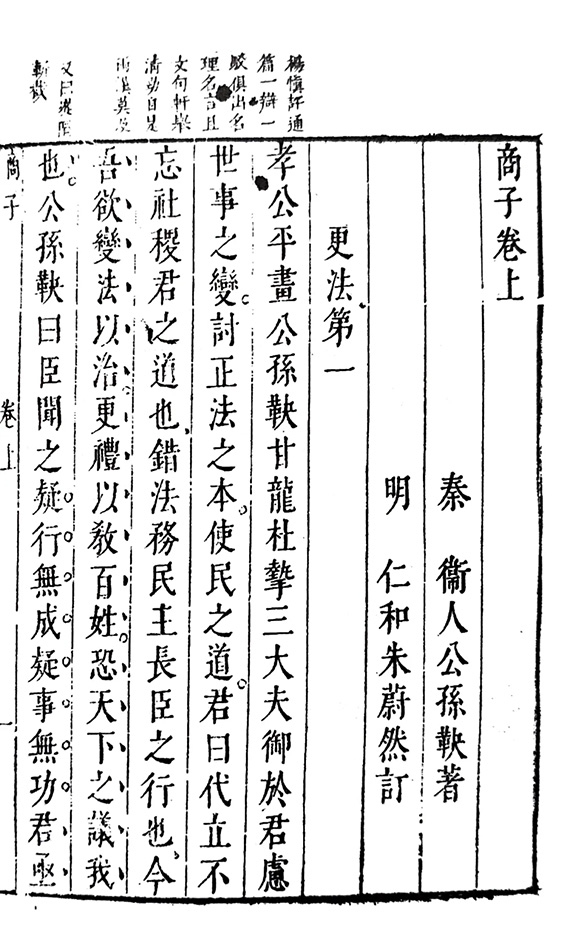 楊慎評通
篇一辯一
駁俱出名
理名言且
文句軒舉
清勁自是
西漢莫及
又曰
斬截
商子卷上
秦　衞人公孫鞅著
明　仁和朱蔚然訂
更法第一
孝公平畫公孫鞅甘龍杜摯三大夫御於君慮
世事之變討正法之本使民之道君曰代立不
忘社稷君之道也錯法務民主長臣之行也今
吾欲變法以治更禮以敎百姓恐天下之議我
也公孫鞅曰臣聞之疑行無成疑事無功君亟
商子　卷上　一